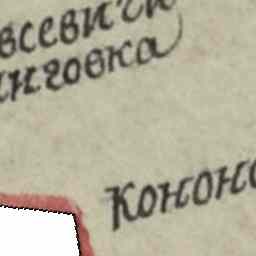 всевичи
инговка
Кононо